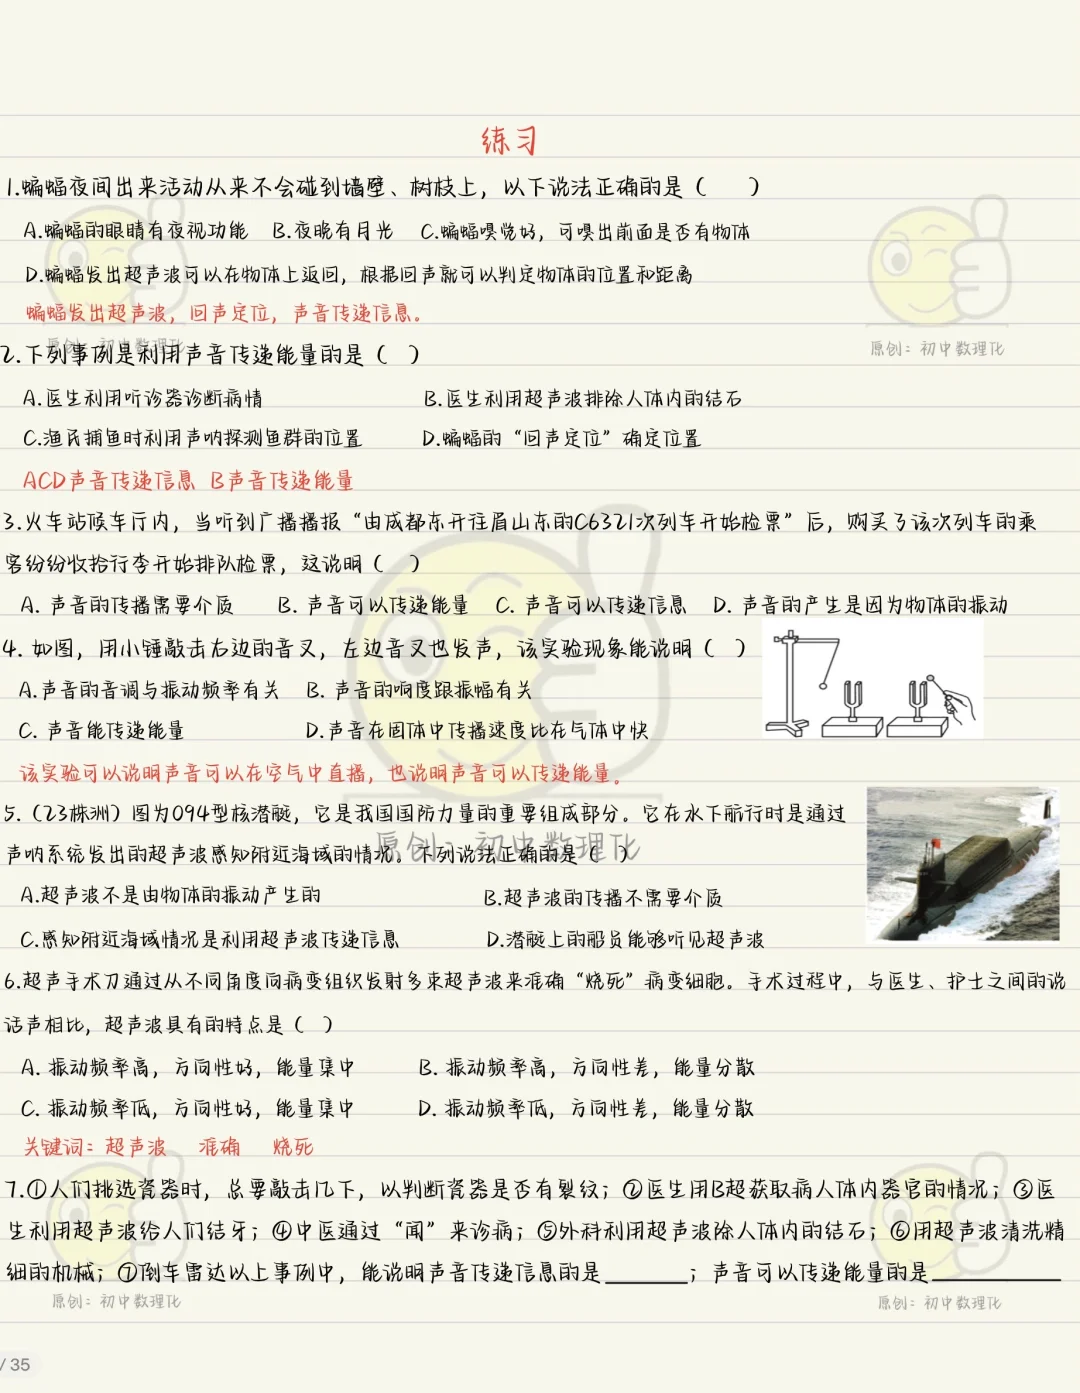 练习
1.蝙蝠夜间出来活动从来不会碰到墙壁、树枝上，以下说法正确的是（　　）
A.蝙蝠的眼睛有夜视功能　B.夜晚有月光　C.蝙蝠嗅觉好，可嗅出前面是否有物体
D.蝙蝠发出超声波可以在物体上返回，根据回声就可以判定物体的位置和距离
蝙蝠发出超声波，回声定位，声音传递信息。
原创：初中数理化
原创：初中数理化
2.下列事例是利用声音传递能量的是（　）
A.医生利用听诊器诊断病情　B.医生利用超声波排除人体内的结石
C.渔民捕鱼时利用声呐探测鱼群的位置　D.蝙蝠的“回声定位”确定位置
ACD声音传递信息 B声音传递能量
3.火车站候车厅内，当听到广播播报“由成都东开往眉山东的C6321次列车开始检票”后，购买了该次列车的乘
客纷纷收拾行李开始排队检票，这说明（　）
A. 声音的传播需要介质　B. 声音可以传递能量　C. 声音可以传递信息　D. 声音的产生是因为物体的振动
4. 如图，用小锤敲击右边的音叉，左边音叉也发声，该实验现象能说明（　）
A.声音的音调与振动频率有关　B. 声音的响度跟振幅有关
C. 声音能传递能量　D.声音在固体中传播速度比在气体中快
该实验可以说明声音可以在空气中直播，也说明声音可以传递能量。
5.（23株洲）图为094型核潜艇，它是我国国防力量的重要组成部分。它在水下航行时是通过
声呐系统发出的超声波感知附近海域的情况。下列说法正确的是（　）
原创：初中数理化
A.超声波不是由物体的振动产生的　B.超声波的传播不需要介质
C.感知附近海域情况是利用超声波传递信息　D.潜艇上的船员能够听见超声波
6.超声手术刀通过从不同角度向病变组织发射多束超声波来准确“烧死”病变细胞。手术过程中，与医生、护士之间的说
话声相比，超声波具有的特点是（　）
A. 振动频率高，方向性好，能量集中　B. 振动频率高，方向性差，能量分散
C. 振动频率低，方向性好，能量集中　D. 振动频率低，方向性差，能量分散
关键词：超声波　准确　烧死
7.①人们挑选瓷器时，总要敲击几下，以判断瓷器是否有裂纹；②医生用B超获取病人体内器官的情况；③医
生利用超声波给人们结牙；④中医通过“闻”来诊病；⑤外科利用超声波除人体内的结石；⑥用超声波清洗精
细的机械；⑦倒车雷达以上事例中，能说明声音传递信息的是________；声音可以传递能量的是____________
原创：初中数理化
原创：初中数理化
/ 35